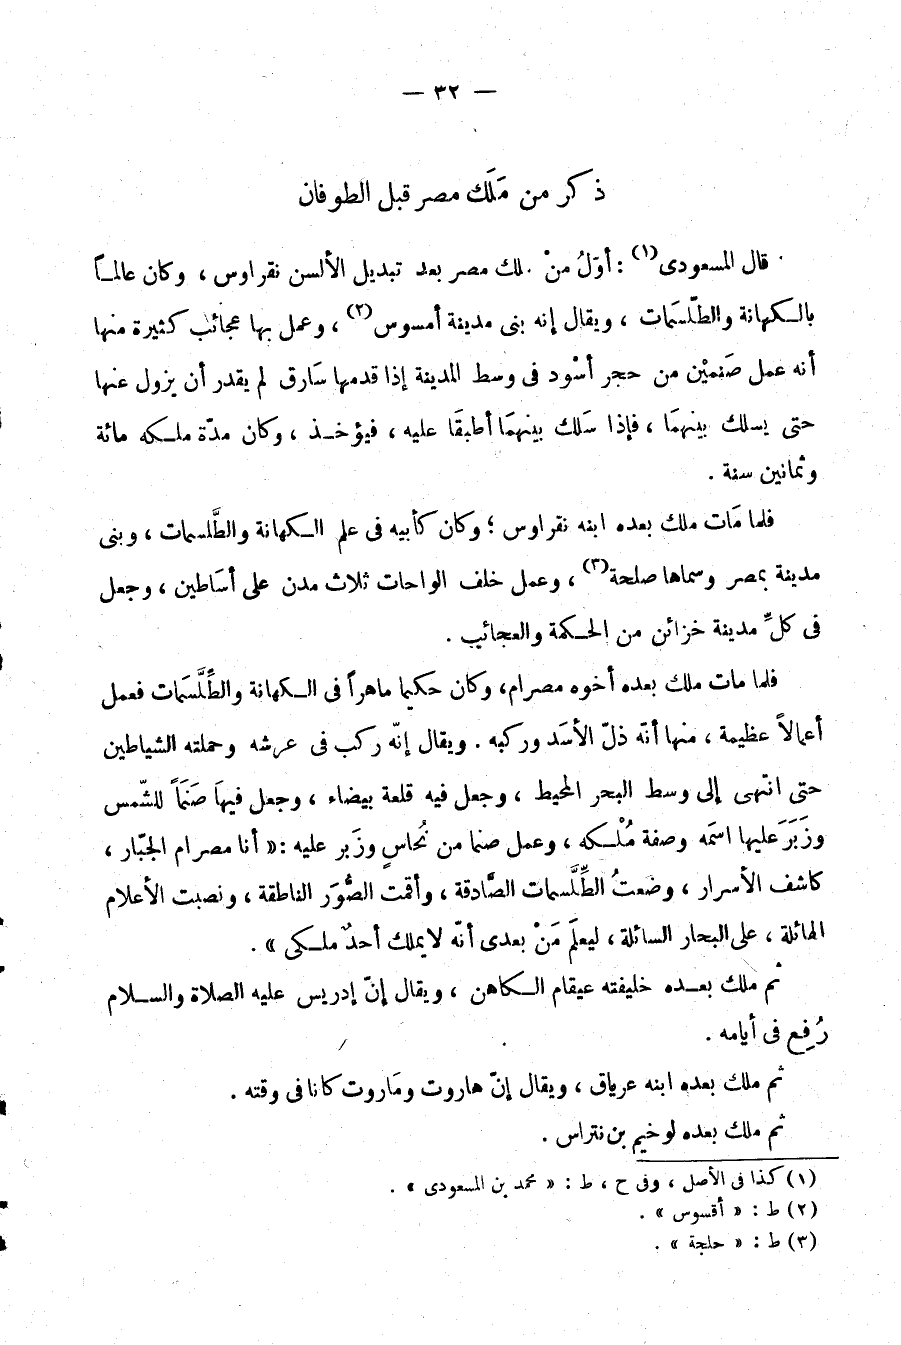 — ٣٢ —
ذكر من مَلَك مصر قبل الطوفان
قال المسعودى(١) : أوّلُ منْ ملك مصر بعد تبديل الألسن نقراوس ، وكان عالمـاً
بالـكهانة والطّلّسمَات ، ويقال إنه بنى مدينة أمسوس(٢) ، وعمل بها عجائب كثيرة منها
أنه عمل صَنميْن من حجر أسْود فى وسط المدينة إذا قدمها سَارق لم يقدر أن يزول عنها
حتى يسلك بينهمَا ، فإذا سَلك بينهمَا أطبقَا عليه ، فيؤخـذ ، وكان مدّة ملـكه مائة
وثمانين سنة .
فلما مَات ملك بعده ابنه نقراوس ؛ وكان كأبيه فى علم الـكهانة والطَّلسمات ، وبنى
مدينة بمصر وسماها صلحة(٣) ، وعمل خلف الواحات ثلاث مدن على أسَاطين ، وجعل
فى كلِّ مدينة خزائن من الحـكمة والعجائب .
فلما مات ملك بعده أخوه مصرام، وكان حكيما ماهراً فى الـكهانة والطِّلَّسمَات فعمل
أعمالاً عظيمة ، منها أنّه ذلّ الأسَد وركبه . ويقال إنّه ركب فى عرشه وحملته الشياطين
حتى انتهى إلى وسط البحر المحيط ، وجعل فيه قلعة بيضاء ، وجعل فيهَا صَنَماً للشّمس
وزَبَرَ عليها اسمَه وصفة مُلْـكه ، وعمل صنما من نُحاسٍ وزَبر عليه :« أنا مصرام الجبّار ،
كاشف الأسرار ، وضعتُ الطِّلَّسمات الصَّادقة ، وأقمت الصُّوَر الناطقة ، ونصبت الأعلام
الهائلة ، على البحار السائلة ، ليعلَم مَنْ بعدى أنّه لايملك أحدٌ ملـكى » .
ثم ملك بعـده خليفته عيقام الـكاهن ، ويقال إنّ إدريس عليه الصلاة والسـلام
رُفِع فى أيامه .
ثم ملك بعده ابنه عرياق ، ويقال إنّ هاروت ومَاروت كانا فى وقته .
ثم ملك بعده لوخيم بن نتراس .
(١) كذا فى الأصل ، وفى ح ، ط : « محمد بن المسعودى » .
(٢) ط : « أقسوس » .
(٣) ط : « حلجة » .